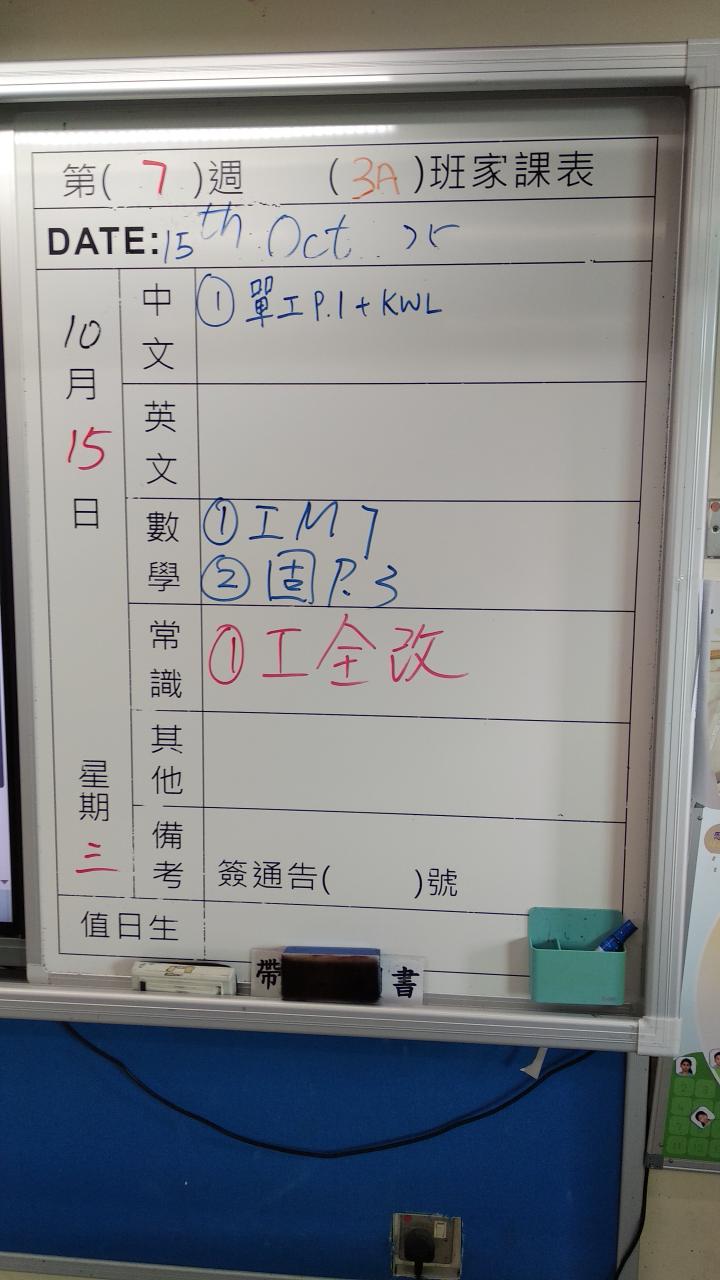 第( 7 )週 ( 3A )班家課表
DATE: 15th Oct 25
10月15日 星期三
中文 ① 單工 P.1 + KWL
英文
數學 ① 工 M 7
② 固 P.3
常識 ① 工全改
其他
備考 簽通告( )號
值日生
帶 書